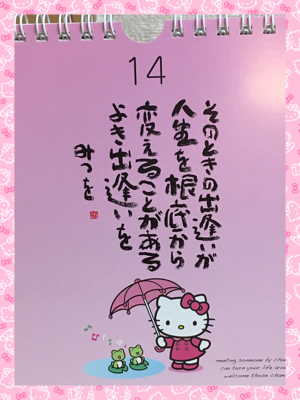 14
そのときの出逢いが
人生を根底から
変えることがある
よき出逢いを
みつを
meeting someone by
can turn your life
welcome those